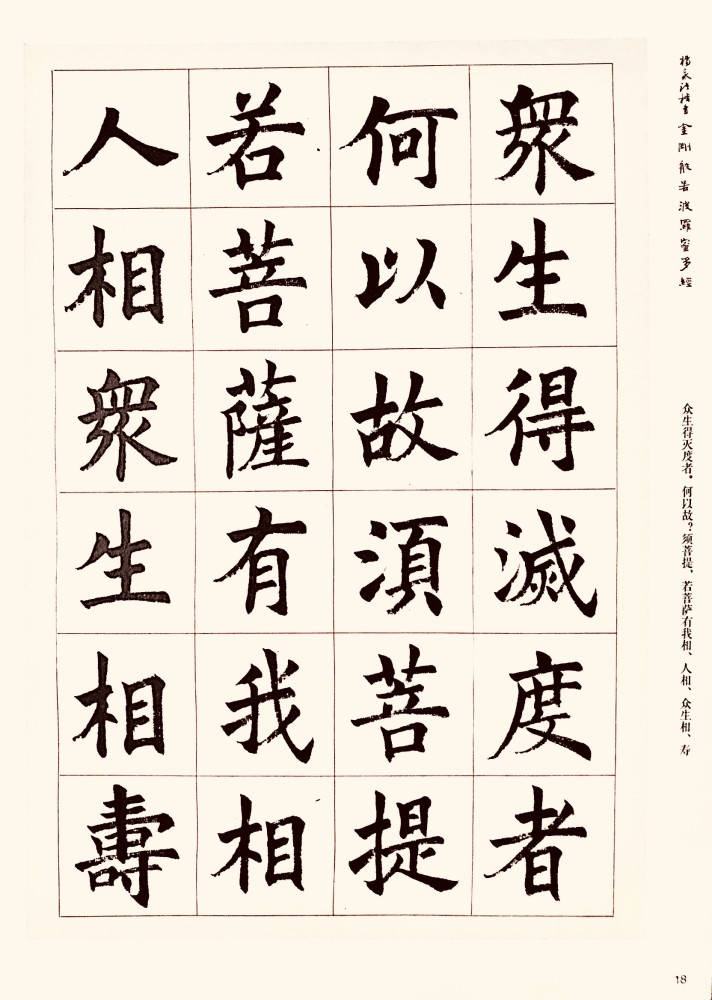 衆生得滅度者
何以故湏菩提
若菩薩有我相
人相衆生相壽
金剛般若波羅蜜多經
众生得灭度者。何以故？须菩提，若菩萨有我相、人相、众生相、寿
18